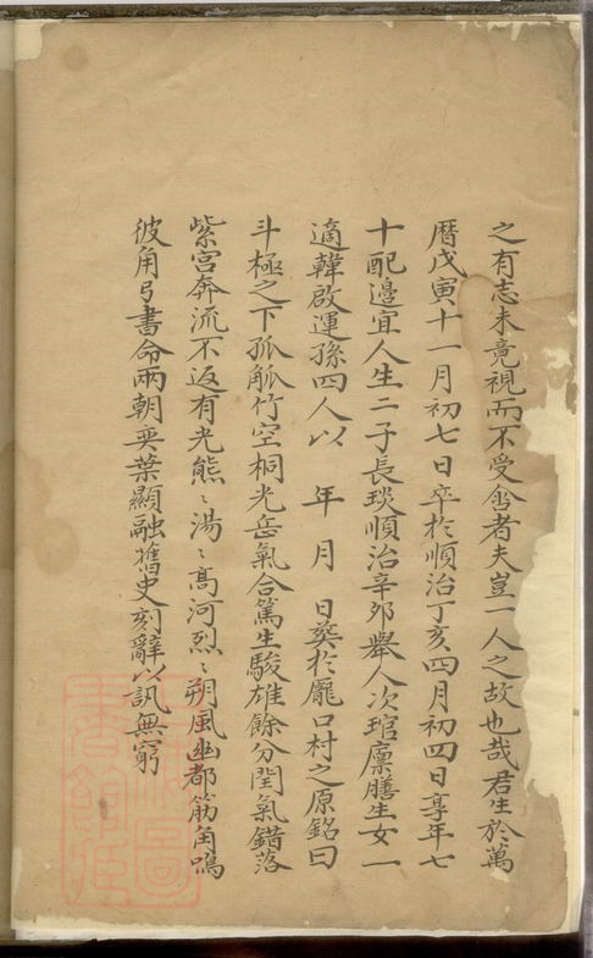 之有志未竟視而不受含者夫豈一人之故也哉君生於萬
曆戊寅十一月初七日卒於順治丁亥四月初四日享年七
十配邊宜人生二子長琰順治辛卯舉人次琯廩膳生女一
適韓啟運孫四人以 年 月 日葬於龐口村之原銘曰
斗極之下孤觚竹空桐光岳氣合篤生駿雄餘分閏氣錯落
紫宮奔流不返有光熊〻湯〻高河烈〻朔風幽都筋角鳴
彼角弓書命兩朝奕葉顯融舊史刻辭以訊無窮